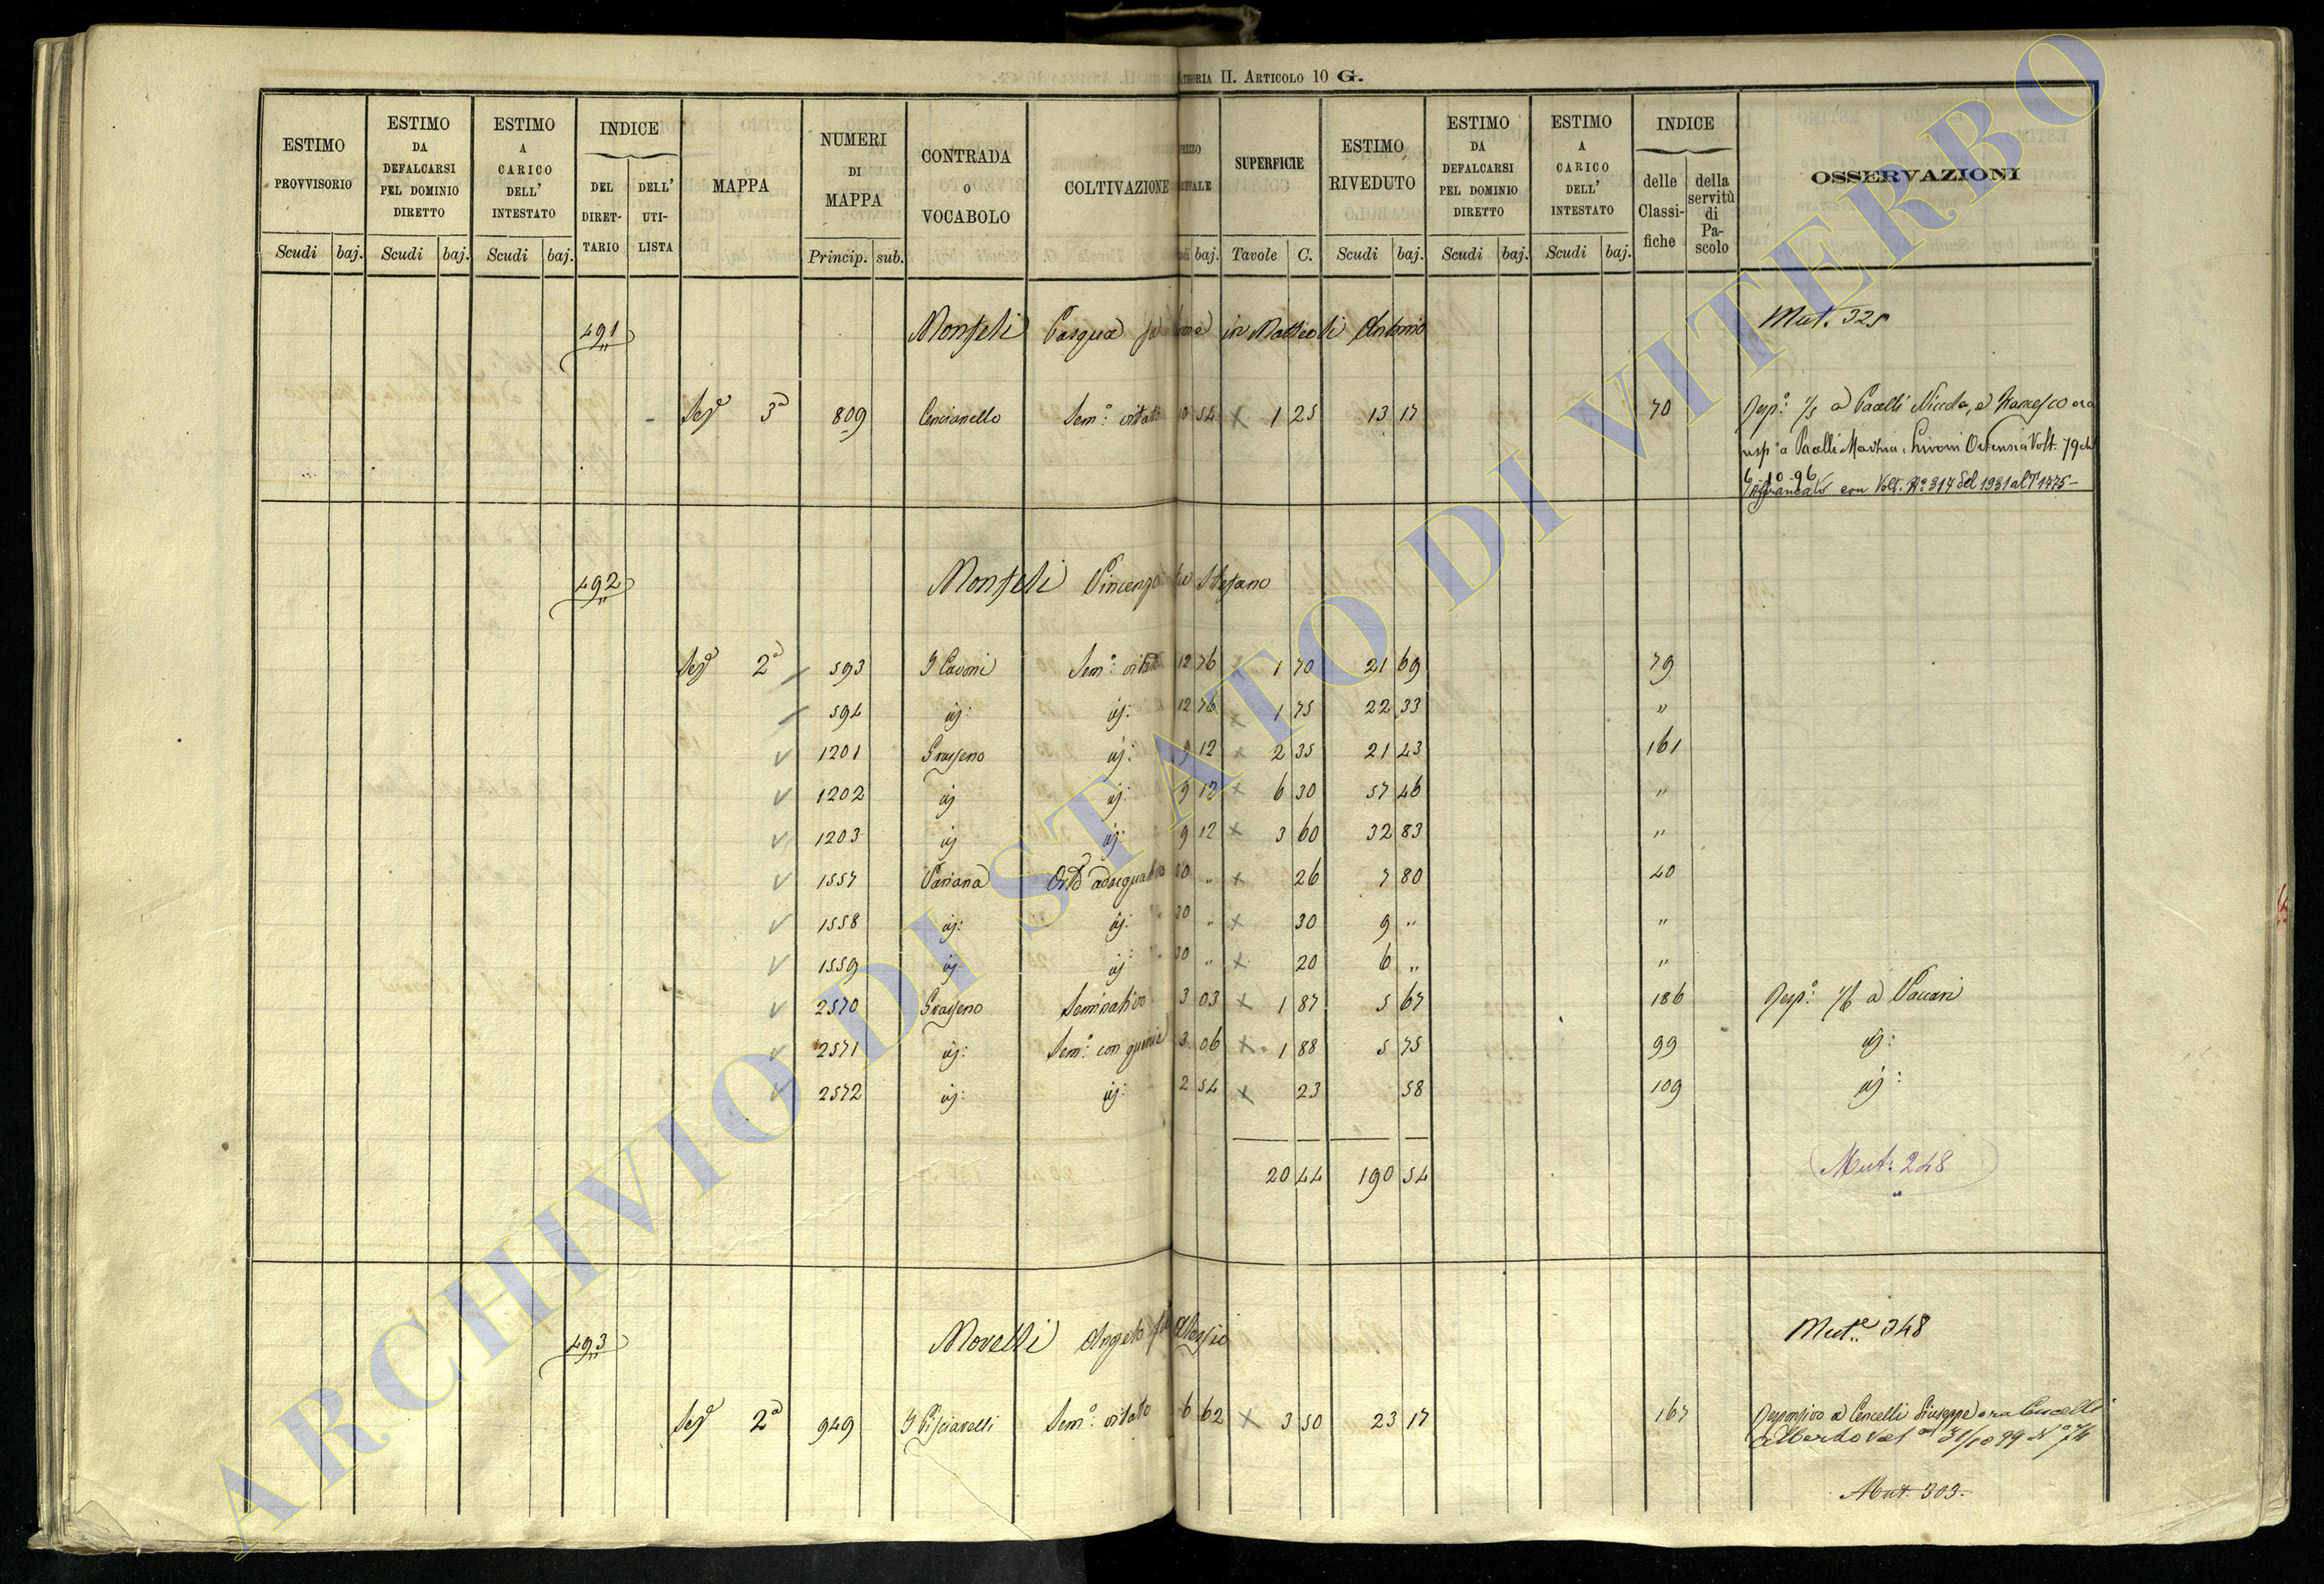 CATEGORIA II. ARTICOLO 10 G.
ESTIMO PROVVISORIO Scudi baj.
ESTIMO DA DEFALCARSI PEL DOMINIO DIRETTO Scudi baj.
ESTIMO A CARICO DELL' INTESTATO Scudi baj.
INDICE DEL DIRETTARIO DELL' UTILISTA
MAPPA
NUMERI DI MAPPA Princip. sub.
CONTRADA O VOCABOLO
COLTIVAZIONE
baj.
SUPERFICIE Tavole C.
ESTIMO RIVEDUTO Scudi baj.
ESTIMO DA DEFALCARSI PEL DOMINIO DIRETTO Scudi baj.
ESTIMO A CARICO DELL' INTESTATO Scudi baj.
INDICE delle Classifiche della servitù di Pascolo
OSSERVAZIONI
491 Monfeli Pasqua in Matteoli Antonio Mut. 325
Sez.e 3a 809 Cencianello Sem.o vitato 10 54 x 1 25 13 17 70 Resp.o 1/5 a Pacelli Nicola, e Francesco ora
resp.o a Pacelli Ortensia Volt. 79 del
6.10.96
Affrancato con Volt. No 314 del 1931 al T 1775-
492 Monfeli Vincenzo fu Stefano
Sez.e 2a 593 I Cavoni Sem.o vitato 12 76 x 1 70 21 69 79
594 iij: iij: 12 76 x 1 75 22 33 "
1201 Grasseno iij: 9 12 x 2 35 21 43 161
1202 iij iij: 9 12 x 6 30 57 46 "
1203 iij iij: 9 12 x 3 60 32 83 "
1557 Variana Orto adacquativo 30 " x 26 7 80 40
1558 iij: iij: 30 " x 30 9 " "
1559 iij iij: 30 " x 20 6 " "
2570 Grasseno Seminativo 3 03 x 1 87 5 67 186 Resp.o 1/6 a Vaccari
2571 iij: Sem.o con querce 3 06 x 1 88 5 75 99 iij:
2572 iij: iij: 2 54 x 23 58 109 iij:
20 44 190 54 Mut. 248
493 Novelli Angelo fu Alessio Mut.e 348
Sez.e 2a 949 I Pisciarelli Sem.o vitato 6 62 x 3 50 23 17 167 Responsivo a Cencelli Giuseppe ora Cencelli
Alberto Vol 31/10 99 No 74
Mut. 303.
ARCHIVIO DI STATO DI VITERBO